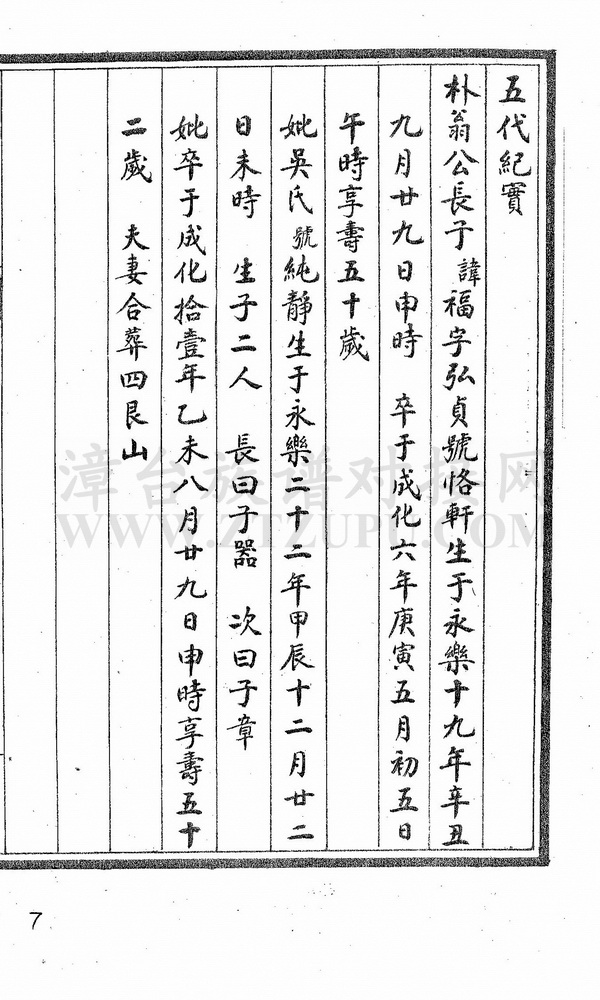 五代紀實
朴翁公長子諱福字弘貞號恪軒生于永樂十九年辛丑
九月廿九日申時 卒于成化六年庚寅五月初五日
午時享壽五十歲
妣吳氏號純靜生于永樂二十二年甲辰十二月廿二
日未時 生子二人 長曰子器 次曰子章
妣卒于成化拾壹年乙未八月廿九日申時享壽五十
二歲 夫妻合葬四艮山
漳台族谱对接网
WWW.ZTZUPU.COM
7